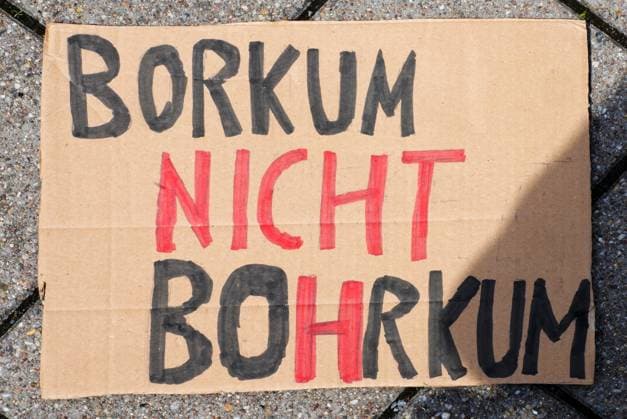 BORKUM
NICHT
BOHRKUM